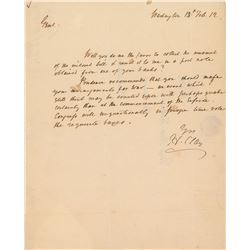 Washington 18 Feb. 12
Gent.
Will you do me the favor to collect the amount
of the inclosed bill & remit it to me in a post note
obtained from one of your banks?
Prudence recommends that you should make
your arrangements for war — an event which
I still think may be counted upon with perhaps greater
certainty than at the commencement of the
Congress will unquestionably in
the requisite taxes.
Yrs
H. Clay